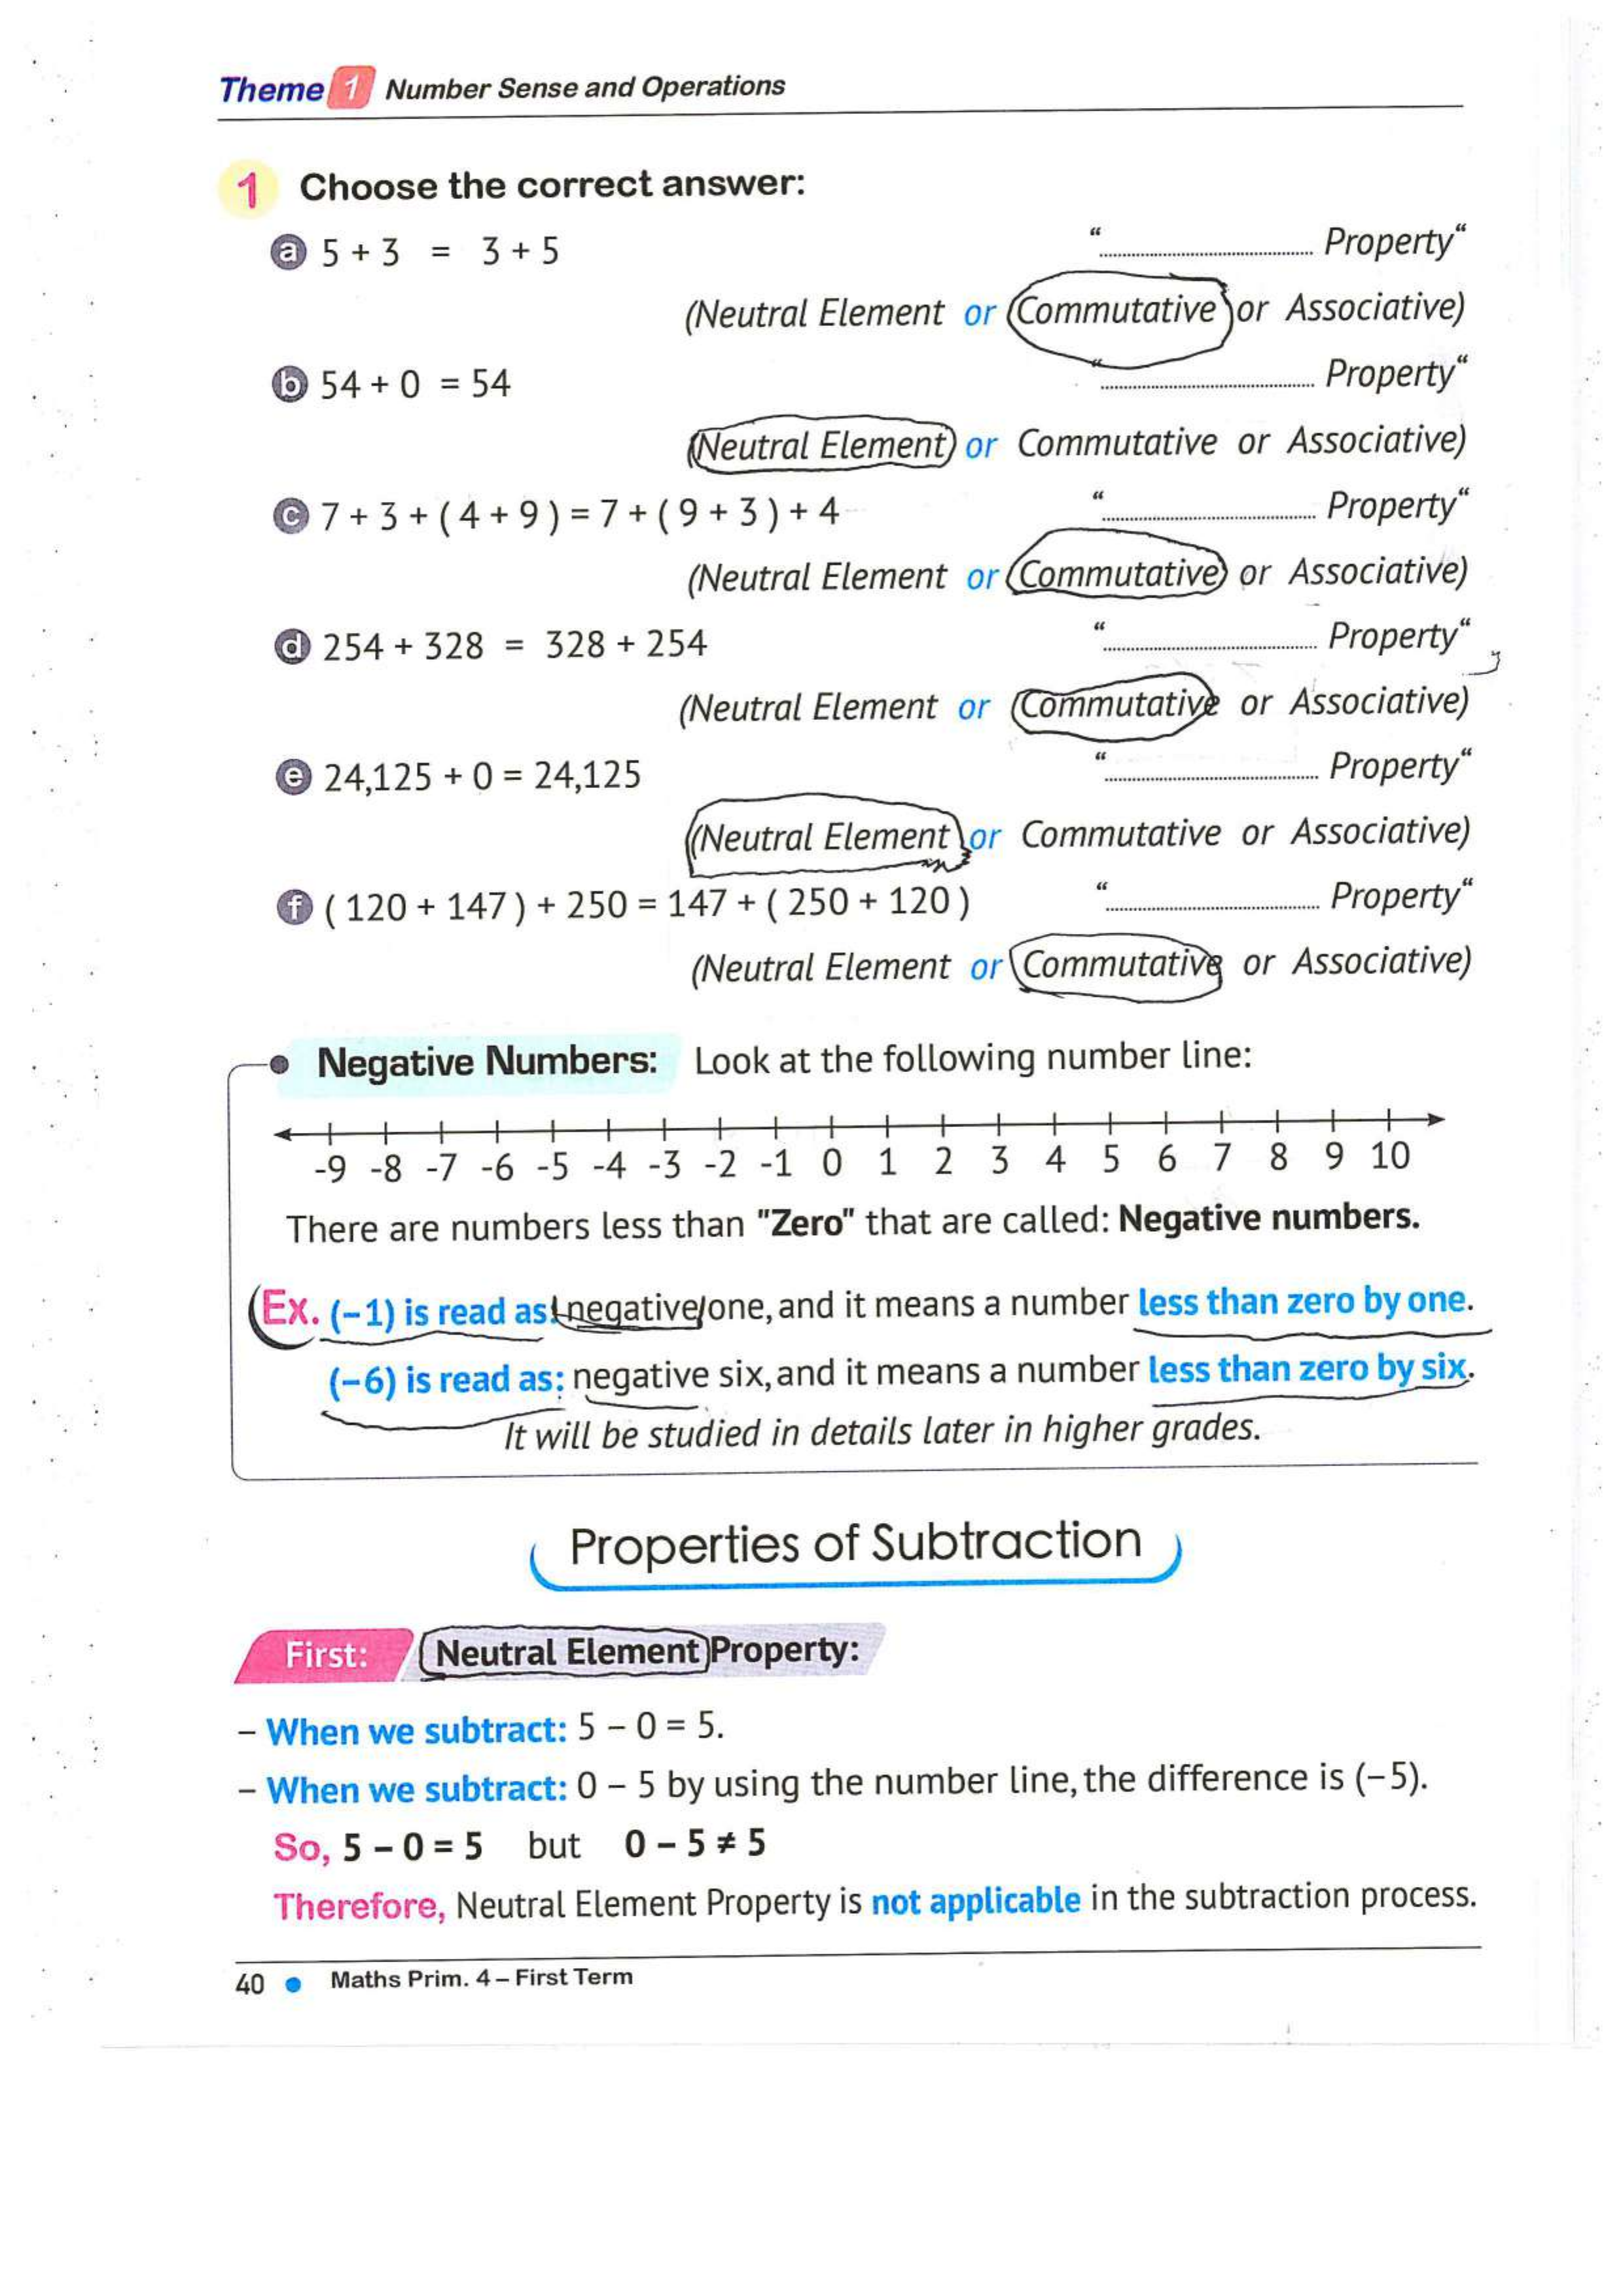 Theme 1 Number Sense and Operations
1 Choose the correct answer:
a 5 + 3 = 3 + 5 “.................................... Property“
(Neutral Element or Commutative or Associative)
b 54 + 0 = 54 “.................................... Property“
(Neutral Element or Commutative or Associative)
c 7 + 3 + ( 4 + 9 ) = 7 + ( 9 + 3 ) + 4 “.................................... Property“
(Neutral Element or Commutative or Associative)
d 254 + 328 = 328 + 254 “.................................... Property“
(Neutral Element or Commutative or Associative)
e 24,125 + 0 = 24,125 “.................................... Property“
(Neutral Element or Commutative or Associative)
f ( 120 + 147 ) + 250 = 147 + ( 250 + 120 ) “.................................... Property“
(Neutral Element or Commutative or Associative)
Negative Numbers: Look at the following number line:
-9 -8 -7 -6 -5 -4 -3 -2 -1 0 1 2 3 4 5 6 7 8 9 10
There are numbers less than "Zero" that are called: Negative numbers.
Ex. (−1) is read as: negative one, and it means a number less than zero by one.
(−6) is read as: negative six, and it means a number less than zero by six.
It will be studied in details later in higher grades.
Properties of Subtraction
First: Neutral Element Property:
– When we subtract: 5 − 0 = 5.
– When we subtract: 0 − 5 by using the number line, the difference is (−5).
So, 5 − 0 = 5 but 0 − 5 ≠ 5
Therefore, Neutral Element Property is not applicable in the subtraction process.
40 • Maths Prim. 4 – First Term